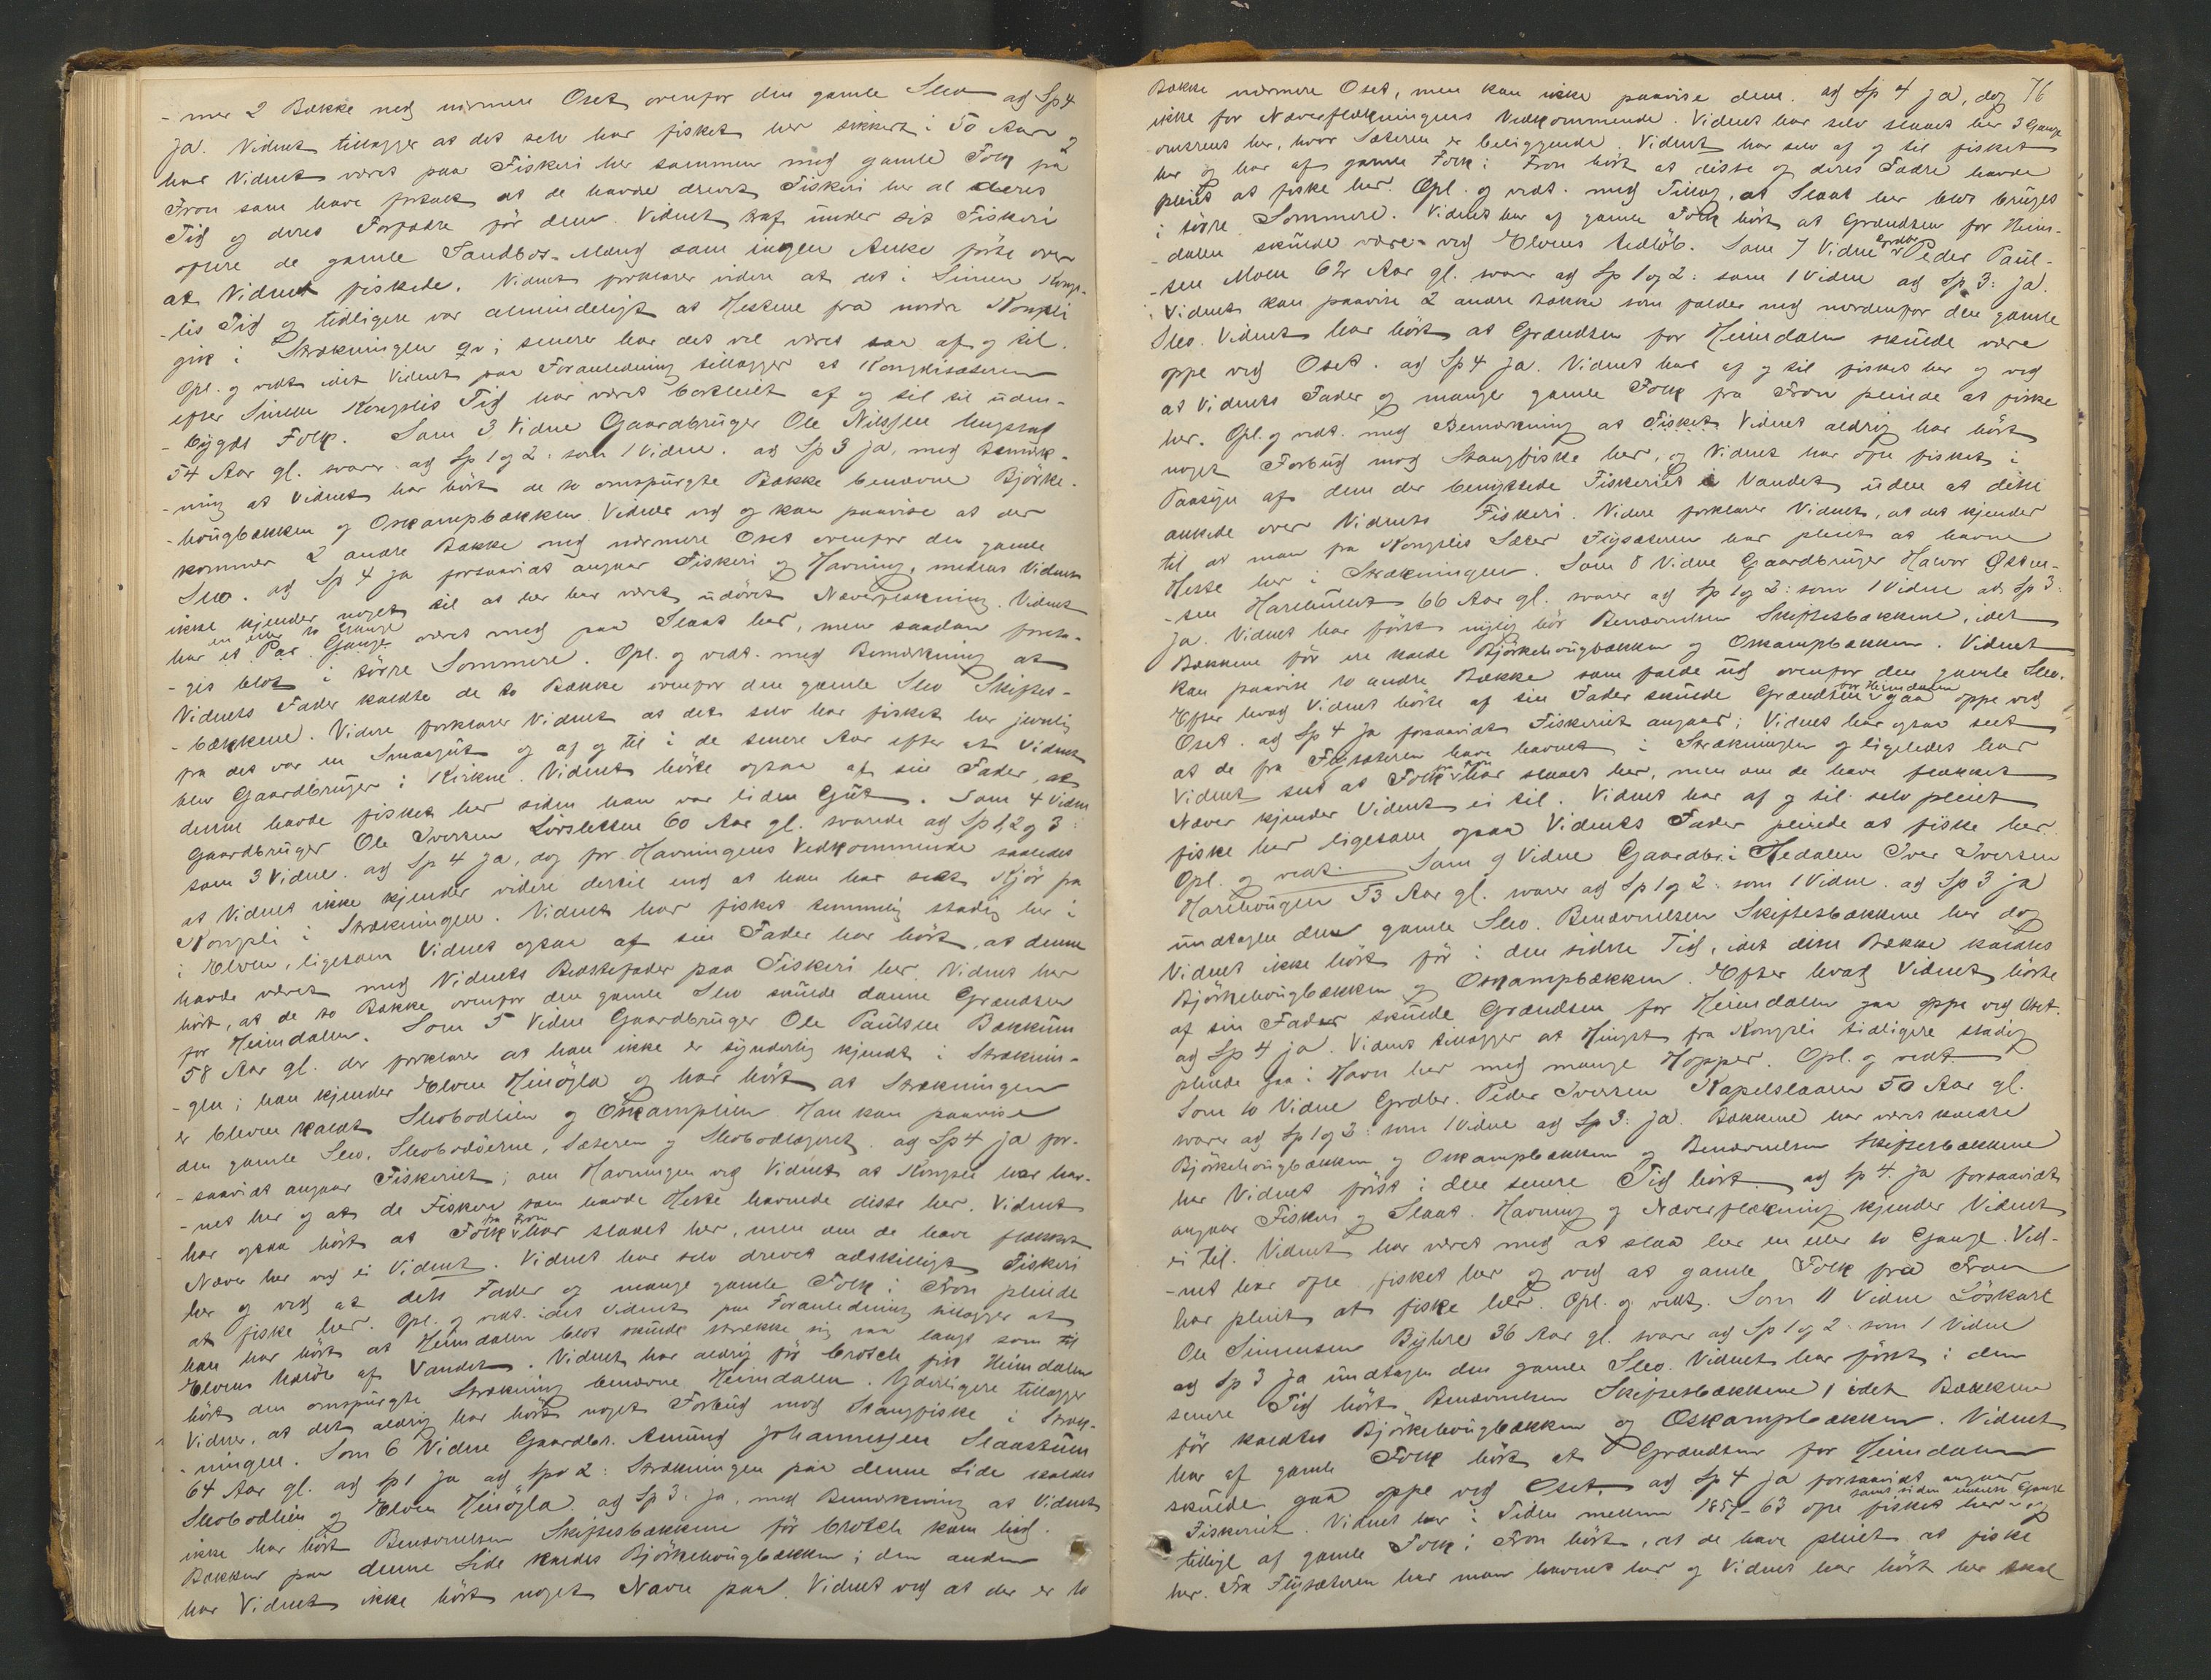 - mer 2 Bække ned nærmere Oset ovenfor den gamle Slео ad Sp 4
ja. Vidnet tillægger at det selv har fisket her sikkert i 50 Aar og
har Vidnet været paa Fiskeri her sammen med gamle Folk på
Fron som have fortalt at de havde drevet Fiskeri her al deres
Tid og deres Forfædre för dem. Vidnet traf under sit Fiskeri
oftere de gamle Sandbos-Mænd som ingen Anke förte over
at Vidnet fiskede. Vidnet forklarer videre at det i Simen Kongs-
- lis Tid og tidligere var almindeligt at Hestene fra nordre Kongsli
gik i Strækningen qv; senere har det vel været saa af og til.
Opl. og vedt. idet Vidnet paa Foranledning tillægger at Kongslisæteren
efter Simen Kongslis Tid har været bortleiet af og til til uden-
- bygds Folk. Som 3 Vidne Gaardbruger Ole Nilssen
54 Aar gl. svarer ad Sp 1 og 2: som 1 Vidne. ad Sp 3 ja, med Bemærk-
- ning at Vidnet har hört de to omspurgte Bække benævne Björke-
- hougbækken og Oskampbækken. Vidnet ved og kan paavise at der
kommer 2 andre Bække ned nærmere Oset ovenfor den gamle
Sleo. ad Sp 4 ja forsaavidt angaar Fiskeri og Havning, medens Vidnet
ikke kjender noget til at her har været udövet Næverflækning. Vidnet
en eller to Gange
har et Par Gange været med paa Slaat her, men saadan foreta-
- ges blot i törre Sommere. Opl. og vedt. med Bemærkning at
Vidnets Fader kaldte de to Bække ovenfor den gamle Sleo Skiftes-
- bækkene. Videre forklarer Vidnet at det selv har fisket her jevnlig
fra det var en Smaagut og af og til i de senere Aar efter at Vidnet
blev Gaardbruger i Kirkne. Vidnet hörte ogsaa af sin Fader, at
denne havde fisket her siden han var liden Gut. Som 4 Vidne
Gaardbruger Ole Iversen Lörsletten 60 Aar gl. svarede ad Sp 1, 2 og 3:
som 3 Vidne. ad Sp 4 ja, dog for Havningens Vedkommende saaledes
at Vidnet ikke kjender videre dertil end at han har seet Kjör fra
Kongsli i Strækningen. Vidnet har fisket temmelig stadig her i
i Elven, ligesom Vidnet ogsaa af sin Fader har hört, at denne
havde været med Vidnets Bedstefader paa Fiskeri her. Vidnet har
hört, at de to Bække ovenfor den gamle Sleo skulde danne Grændsen
for Heimdalen. Som 5 Vidne Gaardbruger Ole Paulsen Bækkum
58 Aar gl. der forklarer at han ikke er synderlig kjendt i Stræknin-
- gen; han kjender Elven Hinögla og har hört at Strækningen
er bleven kaldt Sleobodlien og Oskamplien. Han kan paavise
den gamle Sleo, Sleobodöerne, Sæteren og Sleobodlægeret. ad Sp 4 ja for-
- saavidt angaar Fiskeriet; om Havningen ved Vidnet at Kongsli har hav-
- net her og at de Fiskere som havde Heste havnede disse her. Vidnet
fra Fron
har ogsaa hört at Folk har slaaet her, men om de have flækket
Næver her ved ei Vidnet. Vidnet har selv drevet adskilligt Fiskeri
her og ved at dets Fader og mange gamle Folk i Fron pleiede
at fiske her. Opl. og vedt. idet Vidnet paa Foranledning tillægger at
han har hört at Heimdalen blot skulde strække sig saa langt som til
Elvens Udlöb af Vandet. Vidnet har aldrig för Crotch fik Heimdalen
hört den omspurgte Strækning benævne Heimdalen. Yderligere tillægger
Vidnet, at det aldrig har hört noget Forbud mod Stangfiske i Stræk-
- ningen. Som 6 Vidne Gaardbr. Amund Johannesen Slaastuen
64 Aar gl. ad Sp 1 ja ad Sp 2: Strækningen paa denne Side kaldes
Sleobodlien og Elven Hinögla. ad Sp 3: ja, med Bemærkning at Vidnet
ikke har hört Benævnelsen Skiftesbækkene för Crotch kom hid.
Bækken paa denne Side kaldes Björkehougbækken; den anden
har Vidnet ikke hört noget Navn paa. Vidnet ved at der er to
76
Bække nærmere Oset, men kan ikke paavise dem. ad Sp 4 ja, dog
ikke for Næverflækningens Vedkommende. Vidnet har selv slaaet her 3 Gange
omtrent her, hvor Sæteren er beliggende. Vidnet har selv af og til fisket
her og har af gamle Folk i Fron hört at disse og deres Fædre havde
pleiet at fiske her. Opl. og vedt. med Tillæg, at Slaat her blot bruges
i törre Sommere. Vidnet har af gamle Folk hört at Grændsen for Heim-
- dalen skulde være ved Elvens Udlöb. Som 7 Vidne Grdbr Peder Paul-
- sen Moen 62 Aar gl. svarer ad Sp 1 og 2: som 1 Vidne ad Sp 3: ja.
Vidnet kan paavise 2 andre Bække som falder ned nordenfor den gamle
Sleo. Vidnet har hört at Grændsen for Heimdalen skulde være
oppe ved Oset. ad Sp 4 ja. Vidnet har af og til fisket her og ved
at Vidnets Fader og mange gamle Folk fra Fron pleiede at fiske
her. Opl. og vedt. med Bemærkning at Fisket Vidnet aldrig har hört
noget Forbud mod Stangfiske her, og Vidnet har ofte fisket i
Paasyn af dem der benyttede Fiskeriet i Vandet uden at disse
ankede over Vidnets Fiskeri. Videre forklarer Vidnet, at det kjender
til at man fra Kongslis Sæter Flysæteren har pleiet at havne
Heste her i Strækningen. Som 8 Vidne Gaardbruger Havor Østen-
- sen Harehaugen 66 Aar gl. svarer ad Sp 1 og 2: som 1 Vidne ad Sp 3:
ja. Vidnet har först nylig hört Benævnelsen Skiftesbækkene, idet
Bækkene för ere kaldte Björkehougbækken og Oskampbækken. Vidnet
kan paavise to andre Bække som falde ud ovenfor den gamle Sleo.
for Heimdalen
Efter hvad Vidnet hörte af sin Fader skulde Grændsen gaa oppe ved
Oset. ad Sp 4 ja forsaavidt Fiskeriet angaar; Vidnet har ogsaa seet
at de fra Flysæteren have havnet i Strækningen og ligeledes har
fra Fron
Vidnet seet at Folk har slaaet her, men om de have flækket
Næver kjender Vidnet ei til. Vidnet har af og til selv pleiet
fiske her ligesom ogsaa Vidnets Fader pleiede at fiske her.
Opl. og vedt. Som 9 Vidne Gaardbr. i Hedalen Iver Iversen
Harehougen 53 Aar gl. svarer ad Sp 1 og 2: som 1 Vidne. ad Sp 3 ja
undtagen den gamle Sleo. Benævnelsen Skiftesbækkene har dog
Vidnet ikke hört för i den sidste Tid, idet disse Bække kaldtes
Björkehougbækken og Oskampbækken. Efter hvad Vidnet hörte
af sin Fader skulde Grændsen for Heimdalen gaa oppe ved Oset.
ad Sp 4 ja. Vidnet tillægger at Hingst fra Kongsli tidligere stadig
pleiede gaa i Havn her med mange Hopper. Opl. og vedt.
Som 10 Vidne Grdbr. Peder Iversen Kapelslaaen 50 Aar gl.
svarer ad Sp 1 og 2: som 1 Vidne ad Sp 3: ja. Bækkene har været kaldte
Björkehougbækken og Oskampbækken og Benævnelsen Skiftesbækkene
har Vidnet först i den senere Tid hört. ad Sp 4. ja forsaavidt
angaar Fiskeri og Slaat. Havning og Næverflækning kjender Vidnet
ei til. Vidnet har været med at slaa her en eller to Gange. Vid-
- net har ofte fisket her og ved at gamle Folk fra Fron
har pleiet at fiske her. Opl. og vedt. Som 11 Vidne Löskarl
Ole Simensen Byhre 36 Aar gl. svarer ad Sp 1 og 2: som 1 Vidne
ad Sp 3 ja undtagen den gamle Sleo. Vidnet har först i den
senere Tid hört Benævnelsen Skiftesbækkene, idet Bækkene
för kaldtes Björkehougbækken og Oskampbækken. Vidnet
har af gamle Folk hört at Grændsen for Heimdalen
skulde gaa oppe ved Oset. ad Sp 4 ja forsaavidt angaar
samt siden enkelte Gange
Fiskeriet. Vidnet har i Tiden mellem 1857-63 ofte fisket her og
tillige af gamle Folk i Fron hört, at de have pleiet at fiske
her. Fra Flysæteren har man havnet her og Vidnet har hört her skal